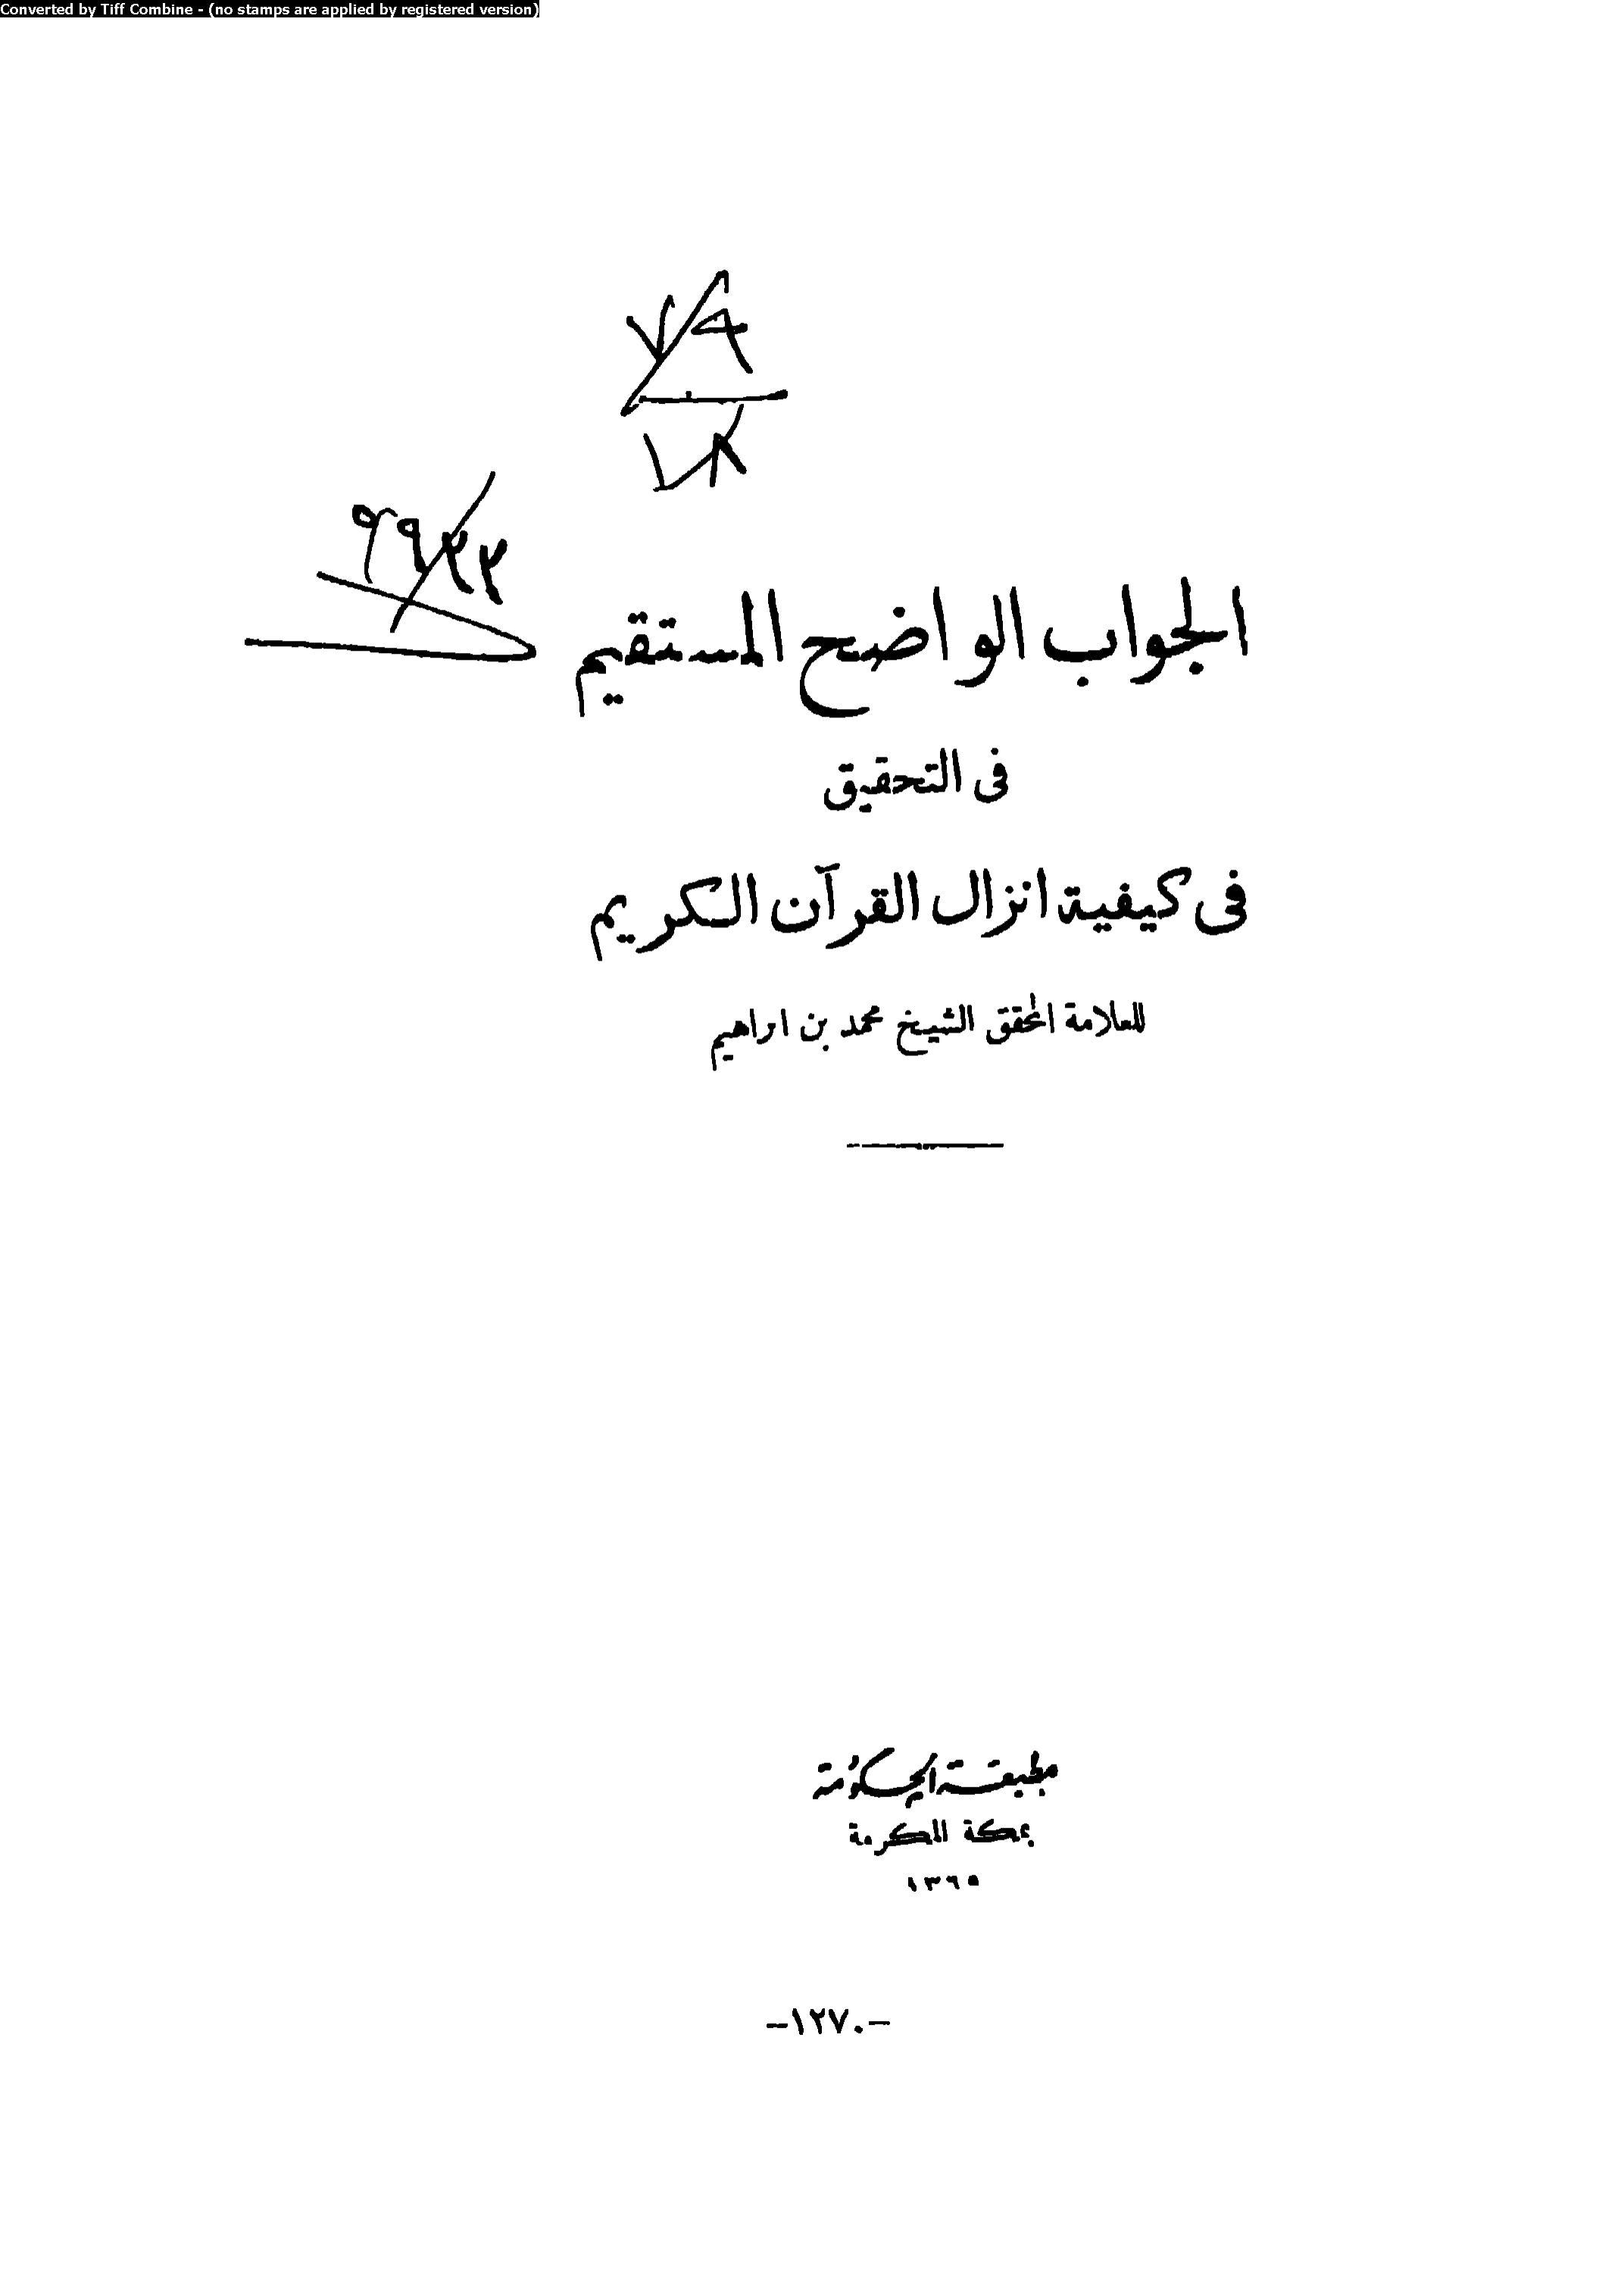 Converted by Tiff Combine - (no stamps are applied by registered version)
٧٩
١٨
٩٩٣٣
الجواب الواضح المستقيم
فى التحقيق
فى كيفية انزال القرآن الكريم
للعلامة المحقق الشيخ محمد بن ابراهيم
مطبعة الحكومة
بمكة المكرمة
١٣٦٥
-١٢٧٠-